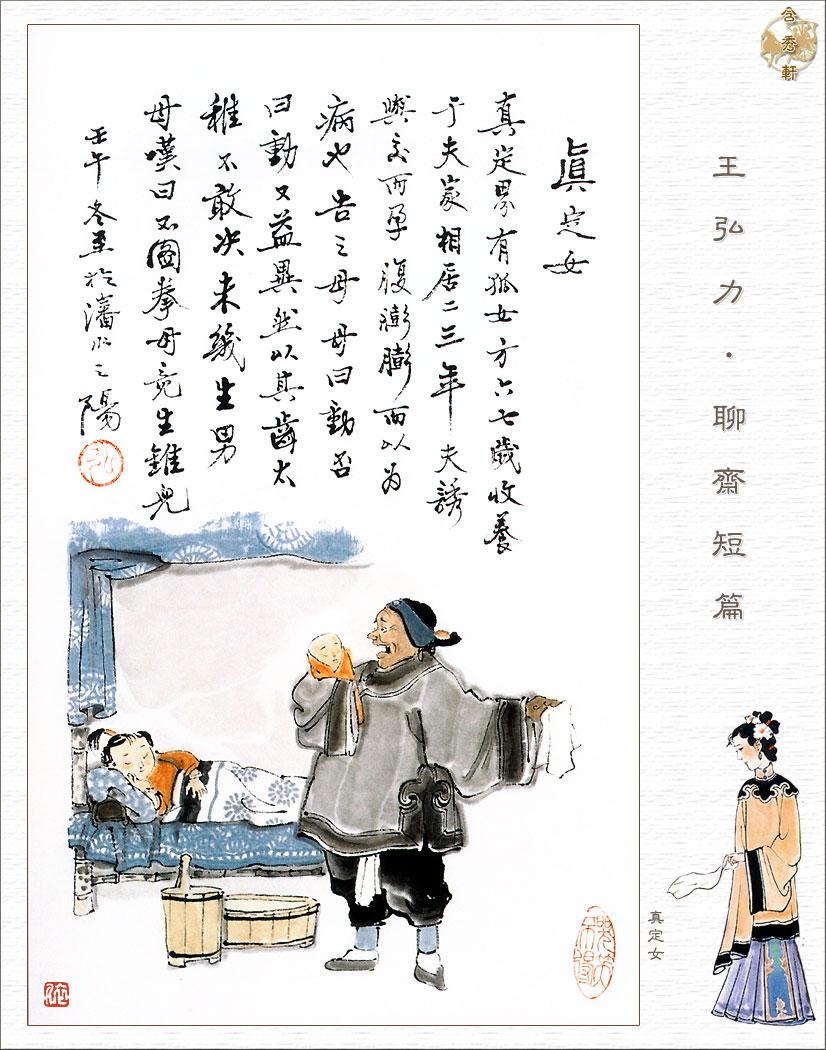 眞定女
真定界有孤女方六七歲收養
于夫家相居二三年夫誘
與交而孕腹膨膨而以为
病也告之母母曰動否
曰動又益異然以其齒太
稚不敢决未幾生男
母嘆曰不圖拳母竟生錐兒
壬午冬於瀋水之陽
弘
含秀軒
王弘力·聊齋短篇
真定女